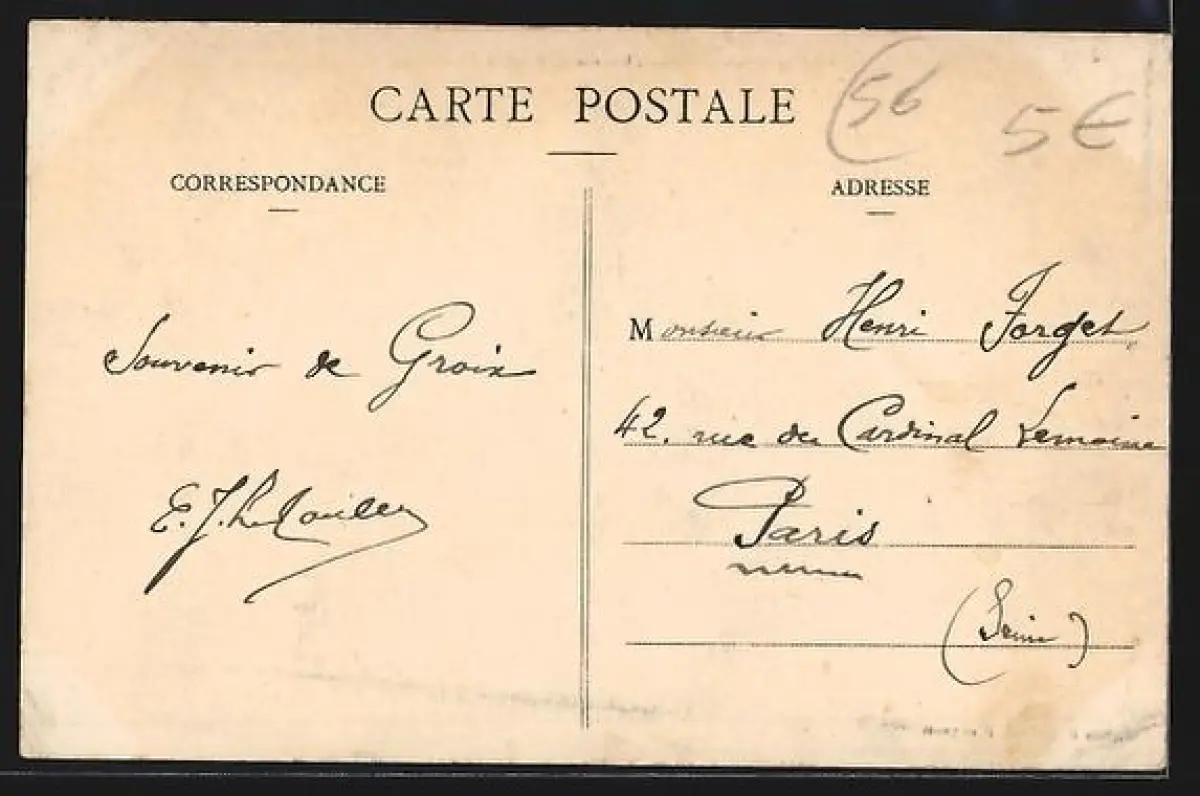 CARTE POSTALE
56
5€
CORRESPONDANCE
Souvenir de Groix
E. J.
ADRESSE
Monsieur Henri Forget
42, rue du Cardinal Lemoine
Paris
(Seine)